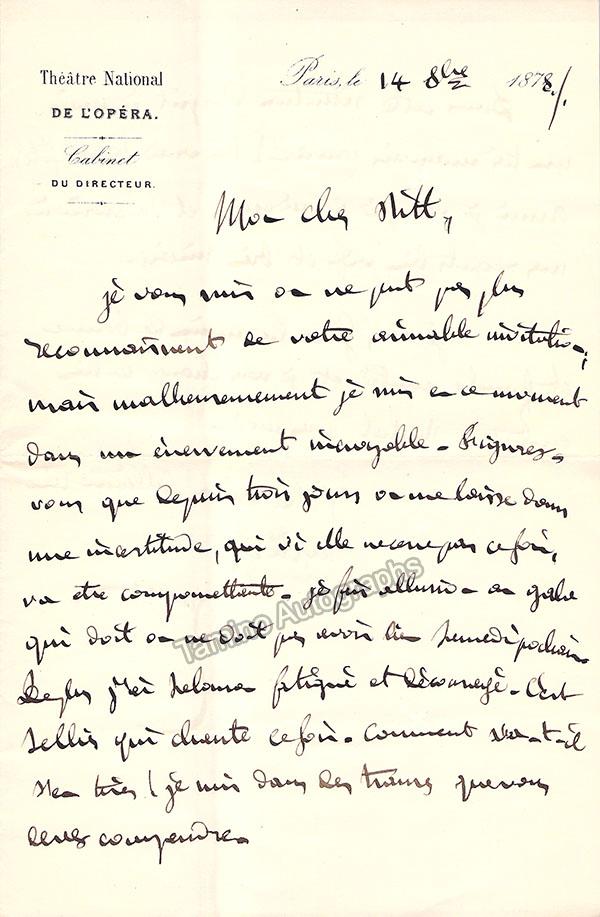 Théâtre National
DE L'OPÉRA.
Cabinet
DU DIRECTEUR.
Paris, le 14 8bre 1878./.
Mon cher Nitt,
je vous suis on ne peut pas plus
reconnaissent de votre aimable invitation,
mais malheureusement je suis en ce moment
dans un énervement incroyable - Figurez-
vous que depuis trois jours on me laisse dans
une incertitude, qui si elle ne cesse pas ce soir,
va être compromettante. je fais allusion au gala
qui doit ou ne doit pas avoir lieu samedi prochain
De plus j'ai Salomon fatigué et découragé - C'est
Sellier qui chante ce soir - Comment va-t-il
s'en tirer! je suis dans des transes que vous
devez comprendre.
Tamino Autographs